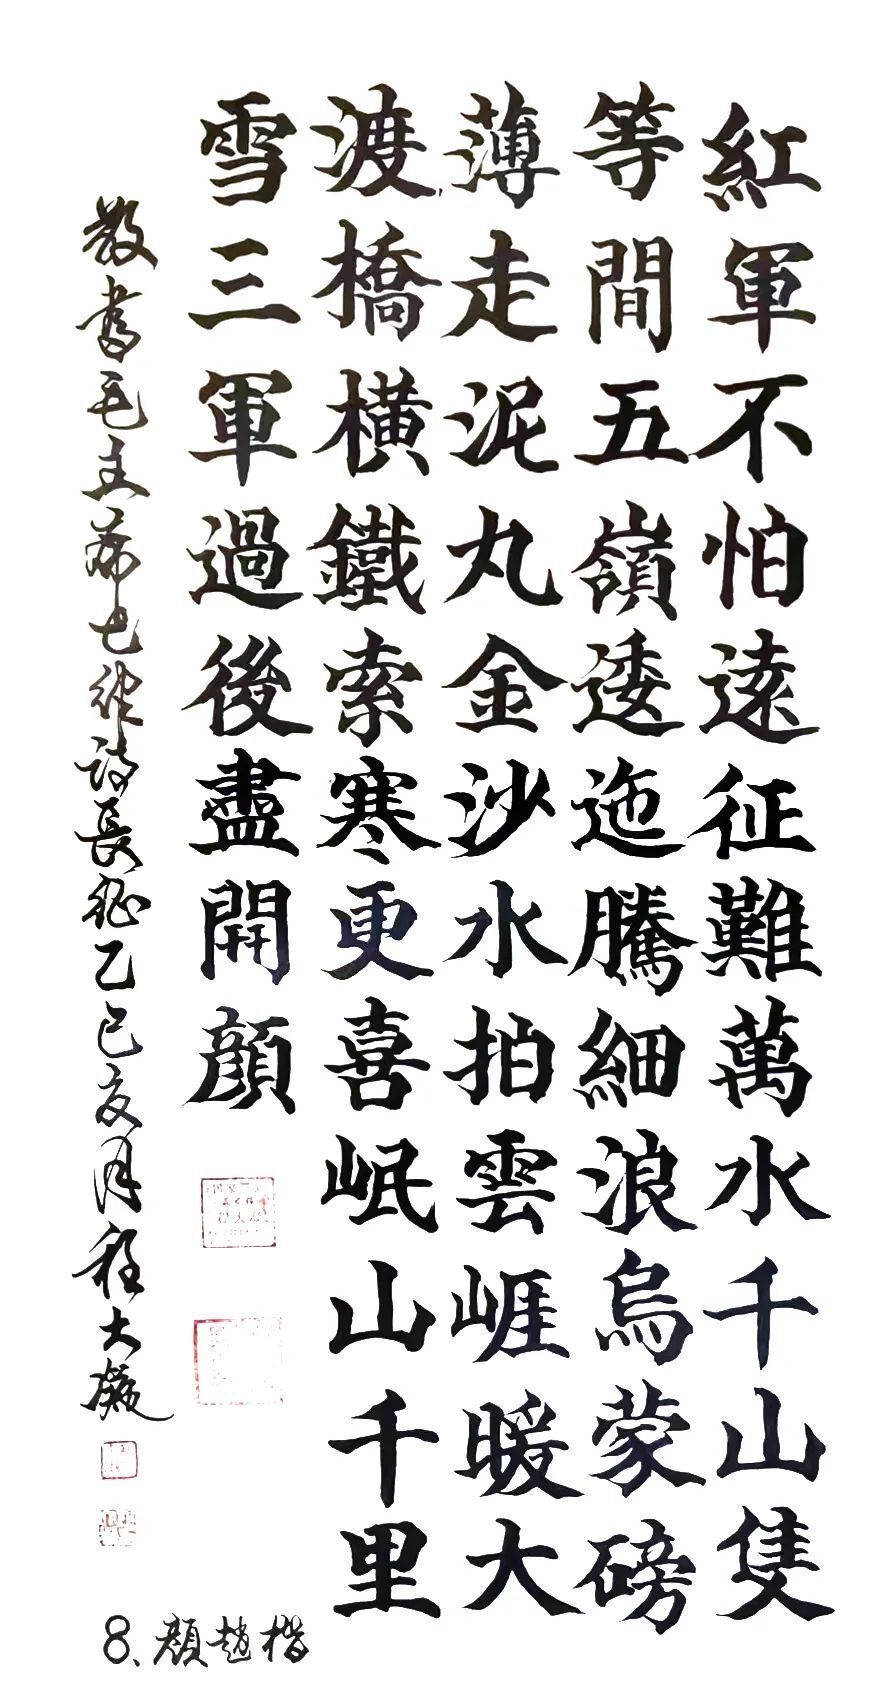 紅軍不怕遠征難萬水千山隻
等間五嶺逶迤騰細浪烏蒙磅
薄走泥丸金沙水拍雲崕暖大
渡橋橫鐵索寒更喜岷山千里
雪三軍過後盡開顔
敬書毛主席七律詩長征乙巳亥月程大
8、顔趙楷